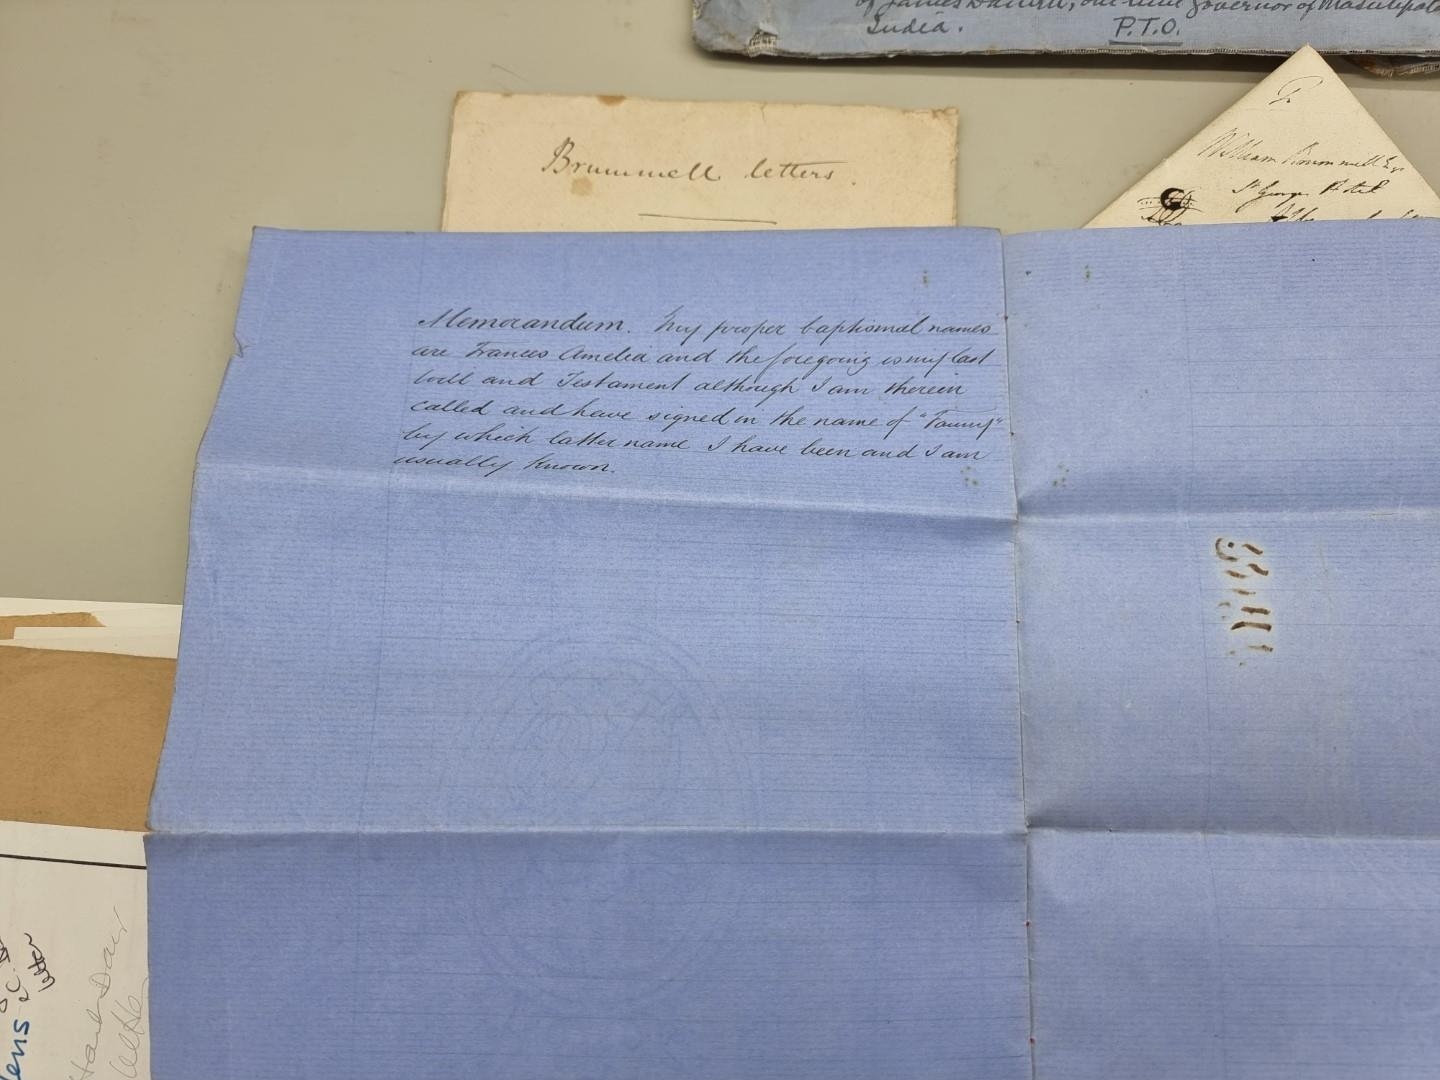 of James Daniell, one time Governor of Masulipata
India.
P.T.O.
Brummell letters.
To
William Brummell Esqr
St George Hotel
Memorandum. My proper baptismal names
are Frances Amelia and the foregoing is my last
Will and Testament although I am therein
called and have signed in the name of "Fanny"
by which latter name I have been and I am
usually known.
letter